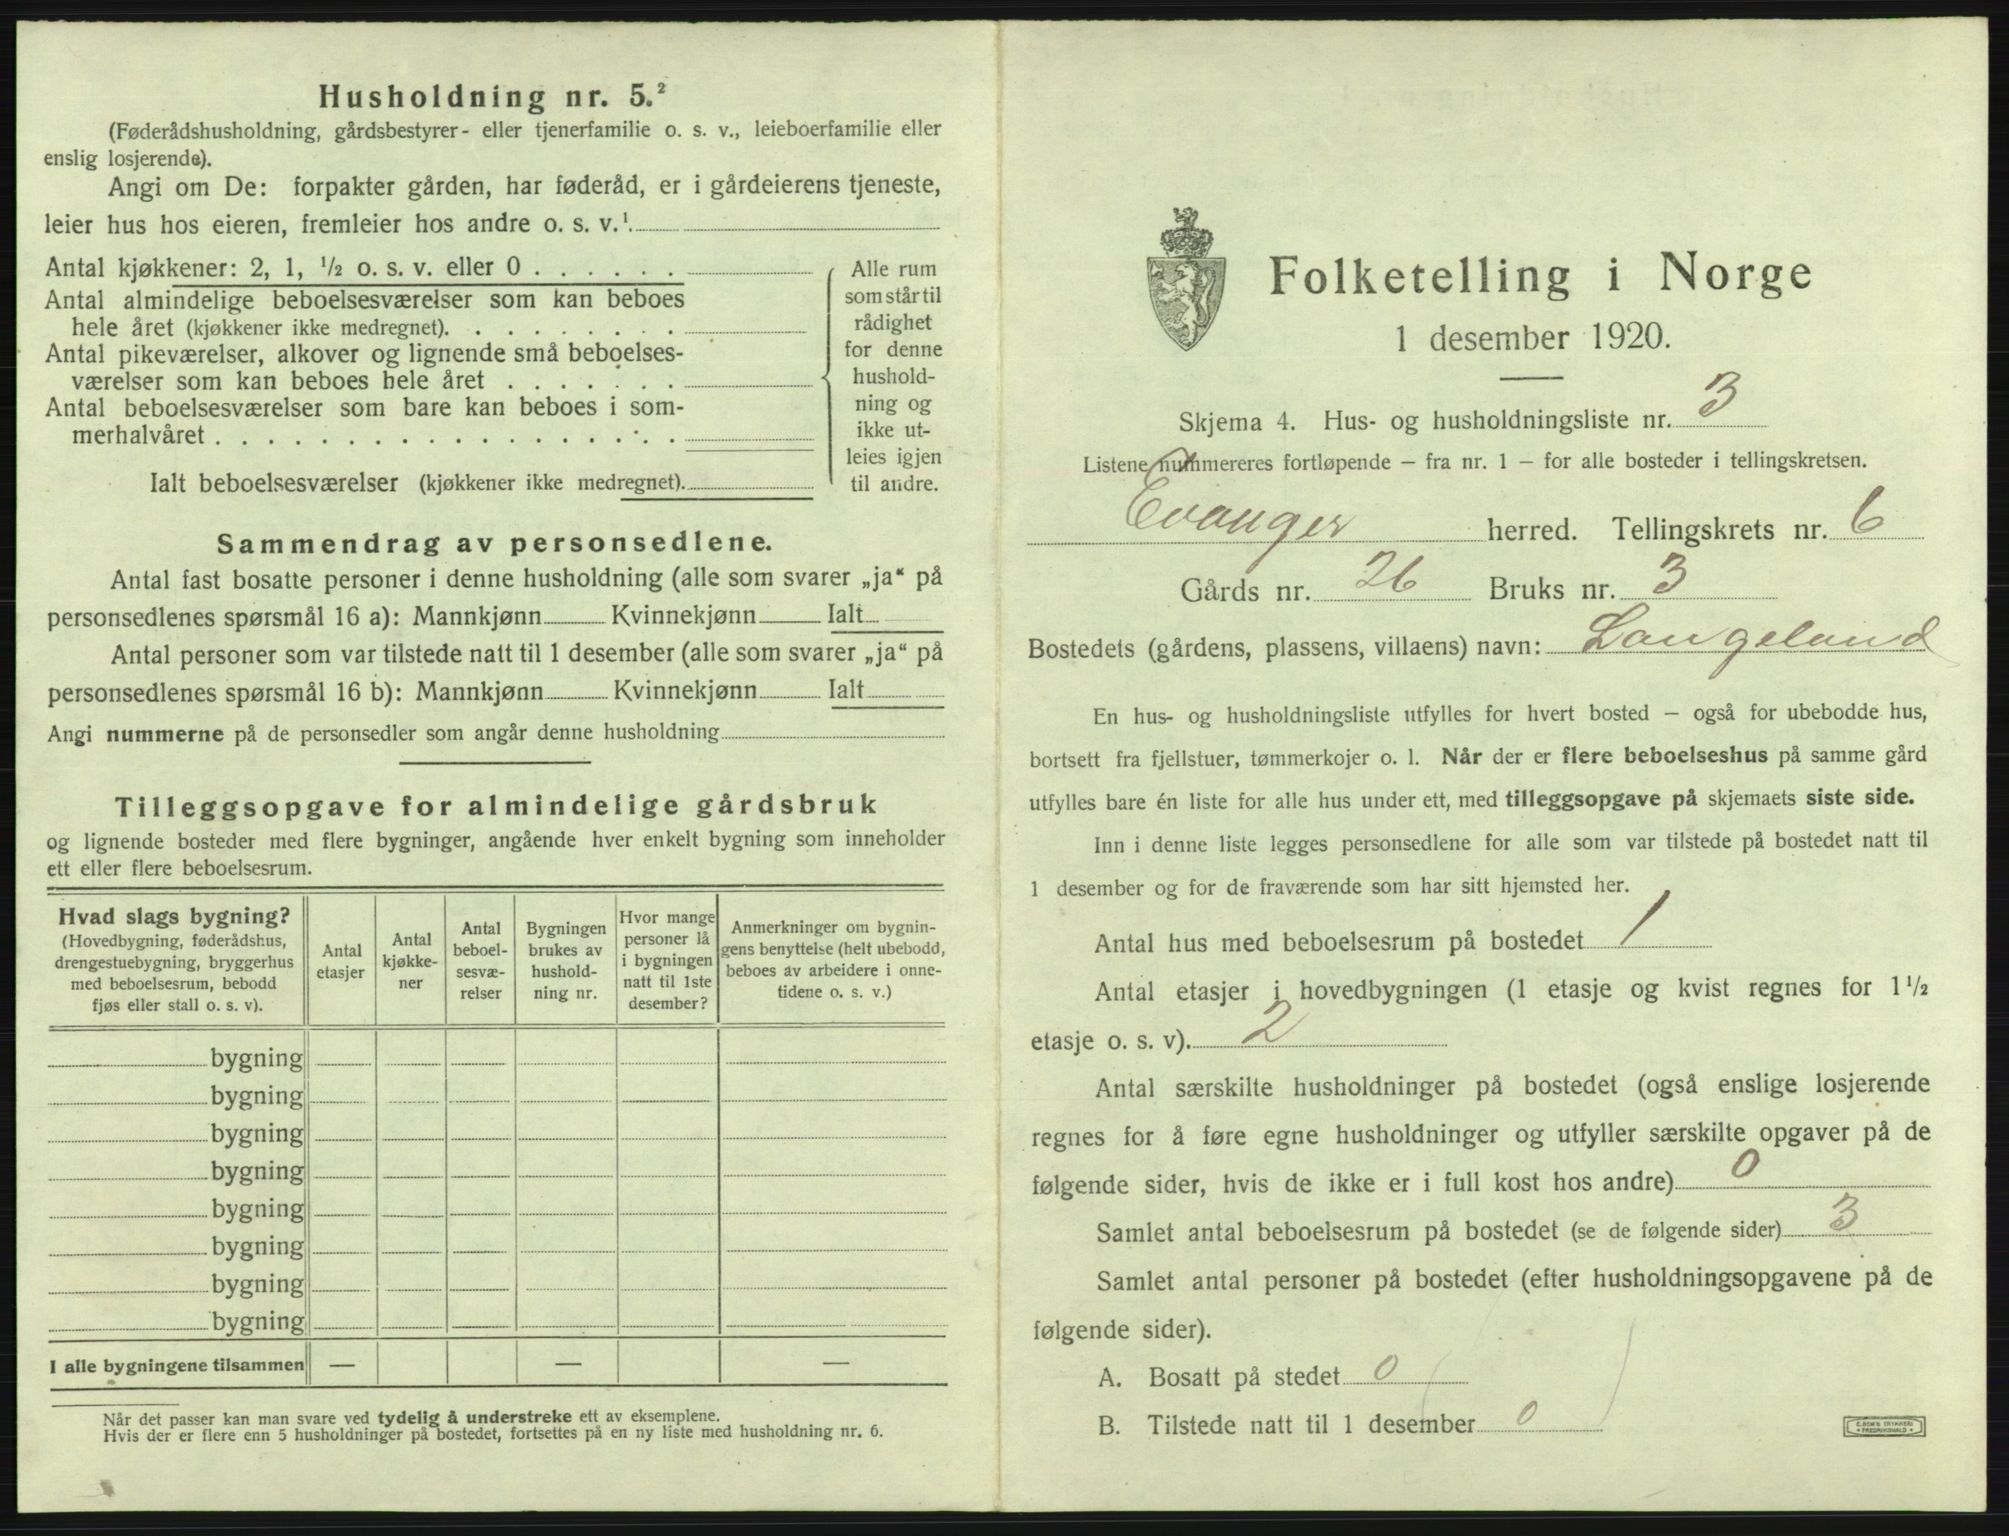 Husholdning nr. 5.²
(Føderådshusholdning, gårdsbestyrer- eller tjenerfamilie o. s. v., leieboerfamilie eller
enslig losjerende).
Angi om De: forpakter gården, har føderåd, er i gårdeierens tjeneste,
leier hus hos eieren, fremleier hos andre o. s. v.¹.
Antal kjøkkener: 2, 1, ½ o. s. v. eller 0 . . . . . .
Antal almindelige beboelsesværelser som kan beboes
hele året (kjøkkener ikke medregnet). . . . . . . . .
Antal pikeværelser, alkover og lignende små beboelses-
værelser som kan beboes hele året . . . . . . .
Antal beboelsesværelser som bare kan beboes i som-
merhalvåret . . . . . . . . . . . . . . . . . .
Ialt beboelsesværelser (kjøkkener ikke medregnet).
Alle rum
som står til
rådighet
for denne
hushold-
ning og
ikke ut-
leies igjen
til andre.
Sammendrag av personsedlene.
Antal fast bosatte personer i denne husholdning (alle som svarer „ja“ på
personsedlenes spørsmål 16 a): Mannkjønn Kvinnekjønn Ialt
Antal personer som var tilstede natt til 1 desember (alle som svarer „ja“ på
personsedlenes spørsmål 16 b): Mannkjønn Kvinnekjønn Ialt
Angi nummerne på de personsedler som angår denne husholdning
Tilleggsopgave for almindelige gårdsbruk
og lignende bosteder med flere bygninger, angående hver enkelt bygning som inneholder
ett eller flere beboelsesrum.
Hvad slags bygning?
(Hovedbygning, føderådshus,
drengestuebygning, bryggerhus
med beboelsesrum, bebodd
fjøs eller stall o. s. v).
Antal
etasjer
Antal
kjøkke-
ner
Antal
beboel-
sesvæ-
relser
Bygningen
brukes av
hushold-
ning nr.
Hvor mange
personer lå
i bygningen
natt til 1ste
desember?
Anmerkninger om bygnin-
gens benyttelse (helt ubebodd,
beboes av arbeidere i onne-
tidene o. s. v.)
bygning
bygning
bygning
bygning
bygning
bygning
bygning
bygning
I alle bygningene tilsammen — — —
Når det passer kan man svare ved tydelig å understreke ett av eksemplene.
Hvis der er flere enn 5 husholdninger på bostedet, fortsettes på en ny liste med husholdning nr. 6.
Folketelling i Norge
1 desember 1920.
Skjema 4. Hus- og husholdningsliste nr. 3
Listene nummereres fortløpende – fra nr. 1 – for alle bosteder i tellingskretsen.
Evanger herred. Tellingskrets nr. 6
Gårds nr. 26 Bruks nr. 3
Bostedets (gårdens, plassens, villaens) navn: Langeland
En hus- og husholdningsliste utfylles for hvert bosted – også for ubebodde hus,
bortsett fra fjellstuer, tømmerkojer o. l. Når der er flere beboelseshus på samme gård
utfylles bare én liste for alle hus under ett, med tilleggsopgave på skjemaets siste side.
Inn i denne liste legges personsedlene for alle som var tilstede på bostedet natt til
1 desember og for de fraværende som har sitt hjemsted her.
Antal hus med beboelsesrum på bostedet 1
Antal etasjer i hovedbygningen (1 etasje og kvist regnes for 1½
etasje o. s. v). 2
Antal særskilte husholdninger på bostedet (også enslige losjerende
regnes for å føre egne husholdninger og utfyller særskilte opgaver på de
følgende sider, hvis de ikke er i full kost hos andre) 0
Samlet antal beboelsesrum på bostedet (se de følgende sider) 3
Samlet antal personer på bostedet (efter husholdningsopgavene på de
følgende sider).
A. Bosatt på stedet 0
B. Tilstede natt til 1 desember 0